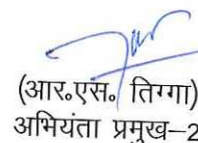 (आर०एस० तिग्गा)
अभियंता प्रमुख–2